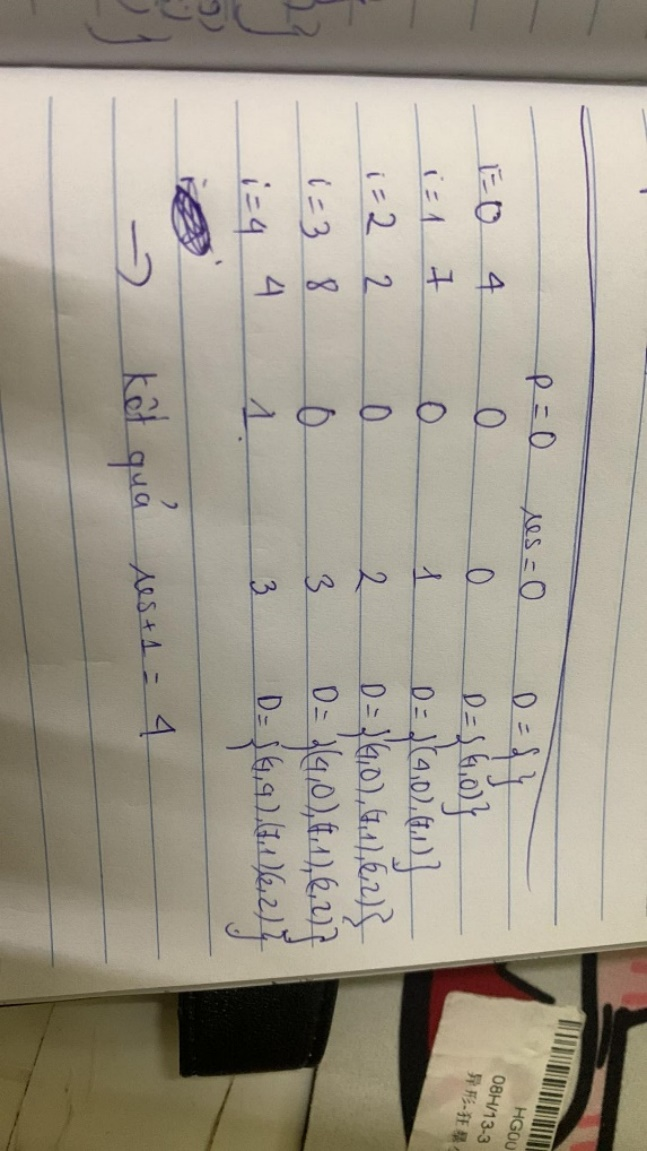 p=0 res=0 D={}
i=0 4 0 0 D={(4,0)}
i=1 7 0 1 D={(4,0),(7,1)}
i=2 2 0 2 D={(4,0),(7,1),(2,2)}
i=3 8 0 3 D={(4,0),(7,1),(2,2)}
i=4 4 1 3 D={(4,4),(7,1)(2,2)}
→ Kết quả res+1=4
HG00
08H/13-3